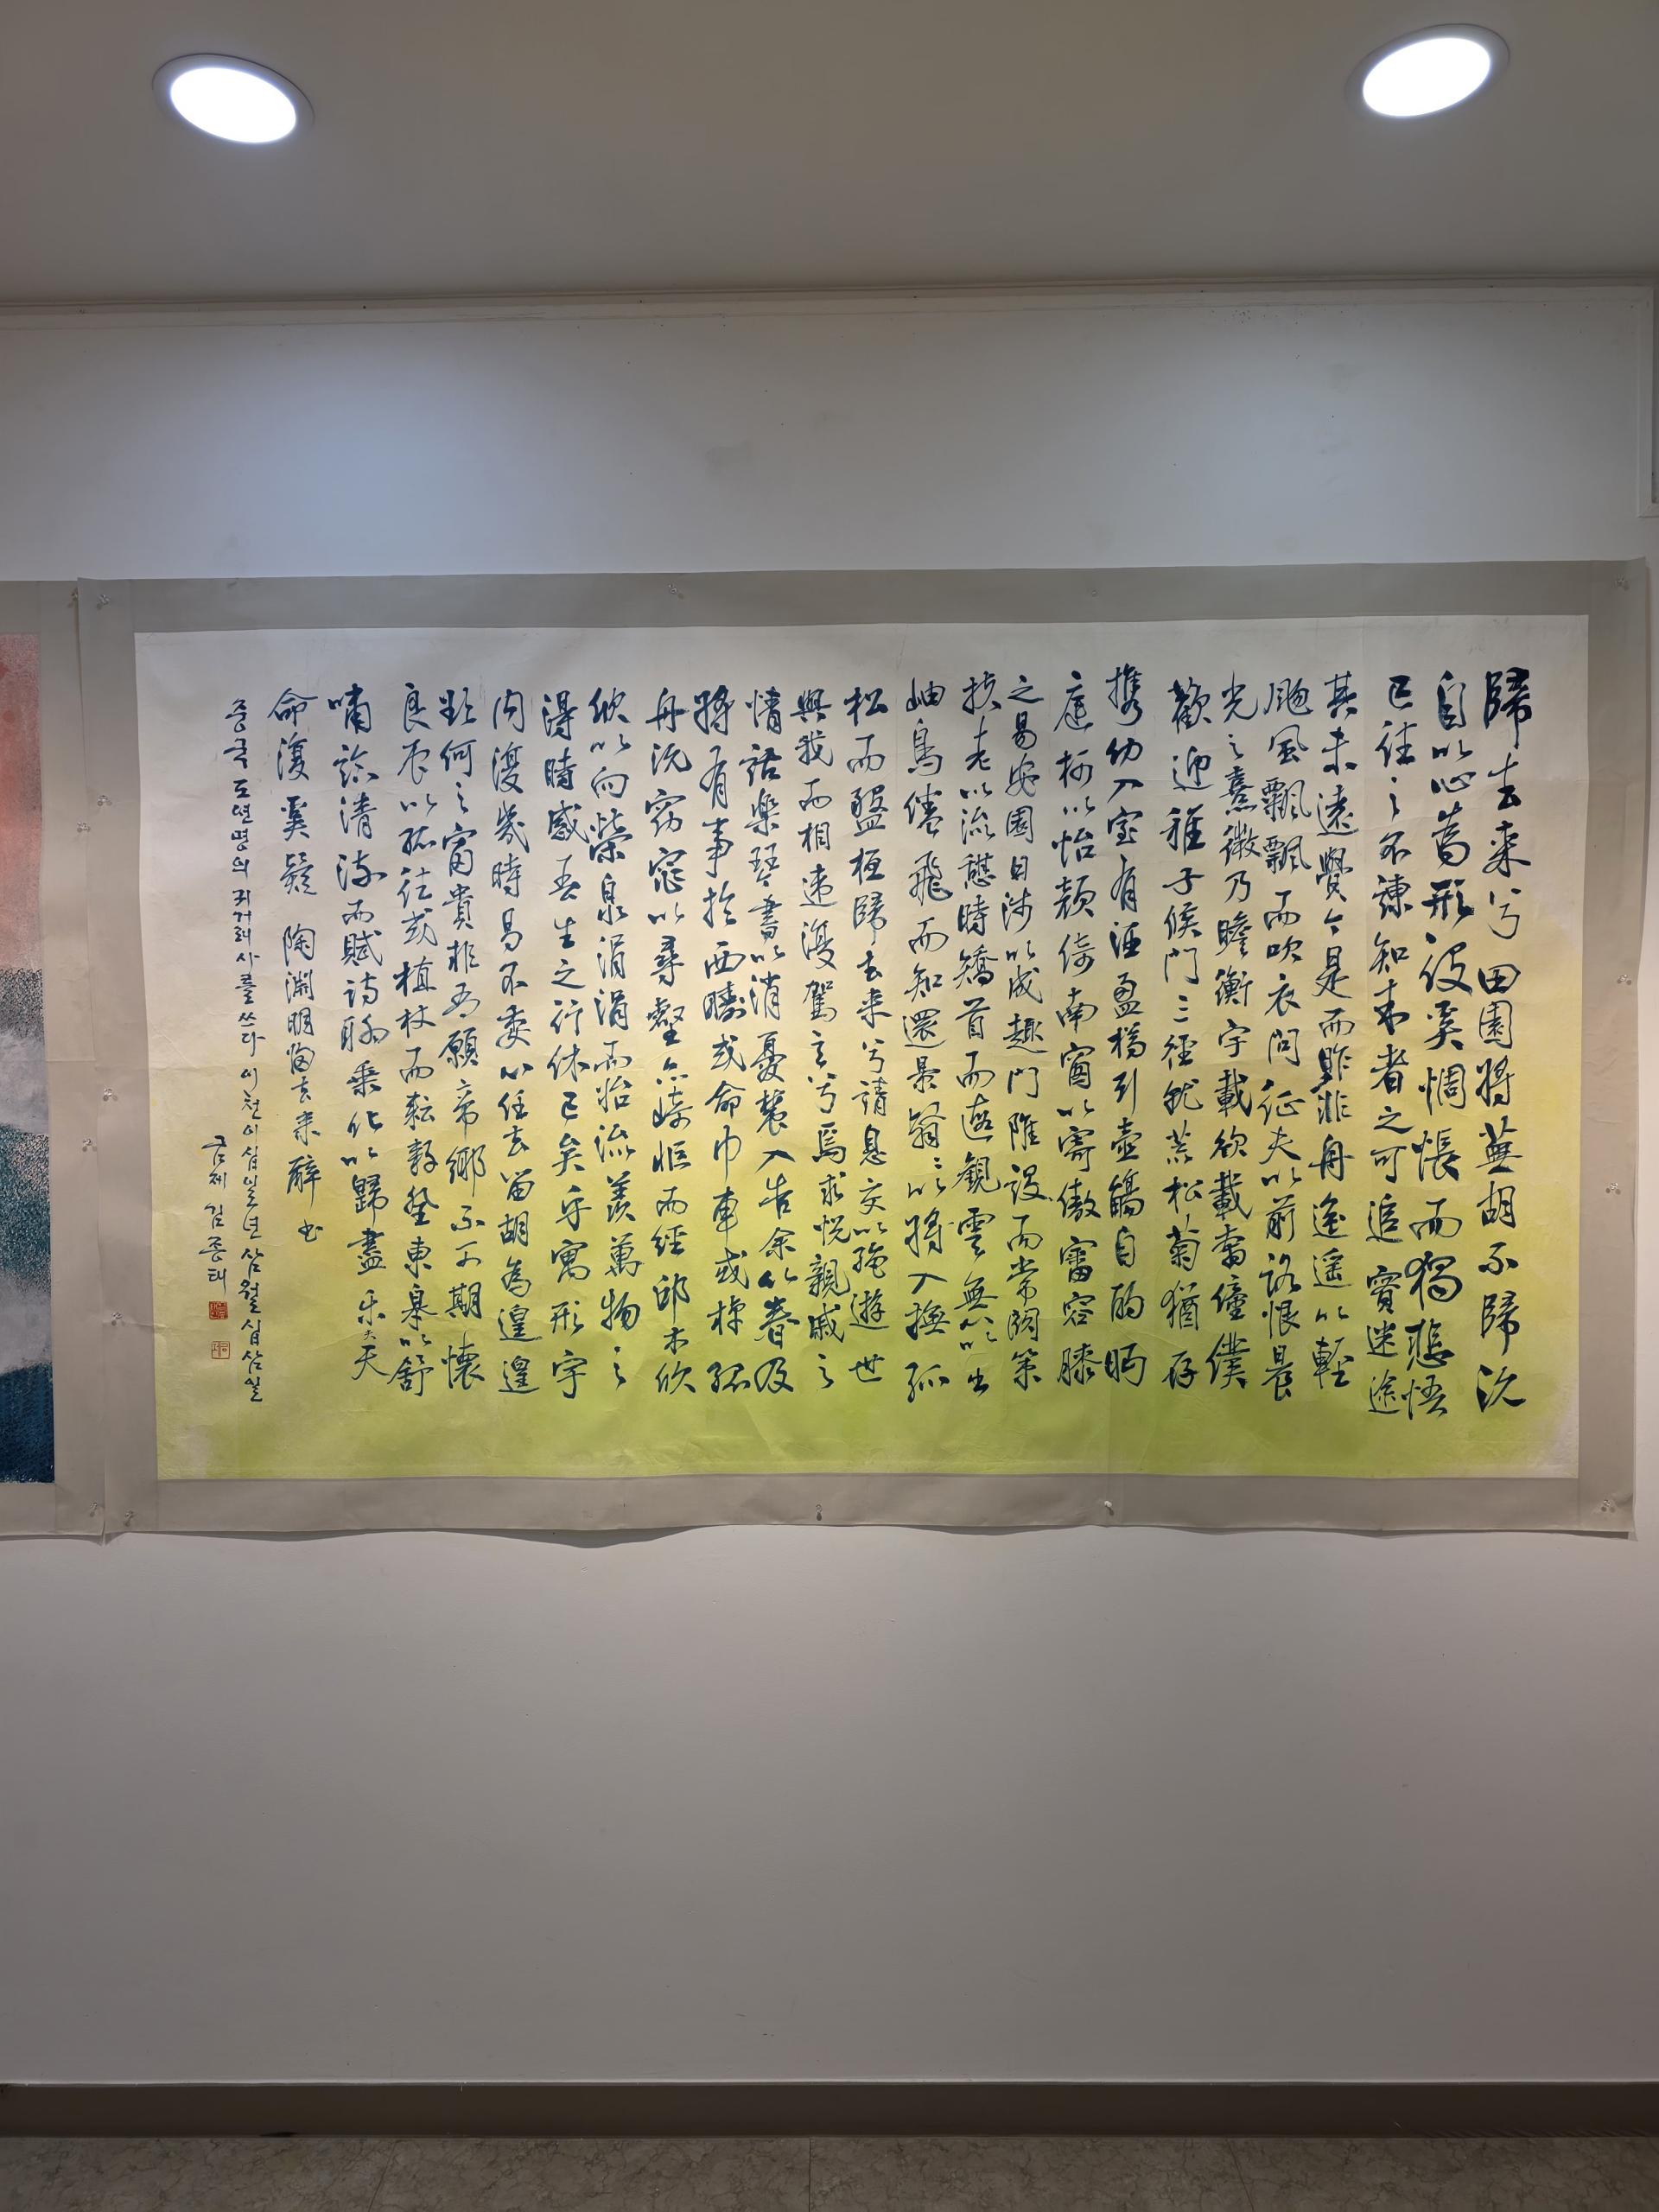 歸去来兮田園将蕪胡不歸既
自以心爲形役奚惆悵而獨悲悟
已往之不諫知来者之可追實迷途
其未遠覺今是而昨非舟遙遙以輕
颺風飄飄而吹衣問征夫以前路恨晨
光之熹微乃瞻衡宇載欣載奔僮僕
歡迎稚子候門三徑就荒松菊猶存
携幼入室有酒盈樽引壺觴自酌眄
庭柯以怡顔倚南窗以寄傲審容膝
之易安園日涉以成趣門雖設而常關策
扶老以流憩時矯首而遐觀雲無心以出
岫鳥倦飛而知還景翳々以將入撫孤
松而盤桓歸去来兮請息交以絶遊世
與我而相違復駕言兮焉求悅親戚之
情話樂琴書以消憂農人告余以春及
將有事於西疇或命巾車或棹孤
舟既窈窕以尋壑亦崎嶇而經邱木欣
欣以向榮泉涓涓而始流羨萬物之
得時感吾生之行休已矣乎寓形宇
内復幾時曷不委心任去留胡為遑遑
欲何之富貴非吾願帝鄉不可期懷
良辰以孤往或植杖而耘耔登東皐以舒
嘯臨清流而賦詩聊乘化以歸盡乐夫天
命復奚疑 陶淵明歸去来辭 書
중국 도연명의 귀거래사를 쓰다 이천이십일년 삼월 십삼일
금제 김종태